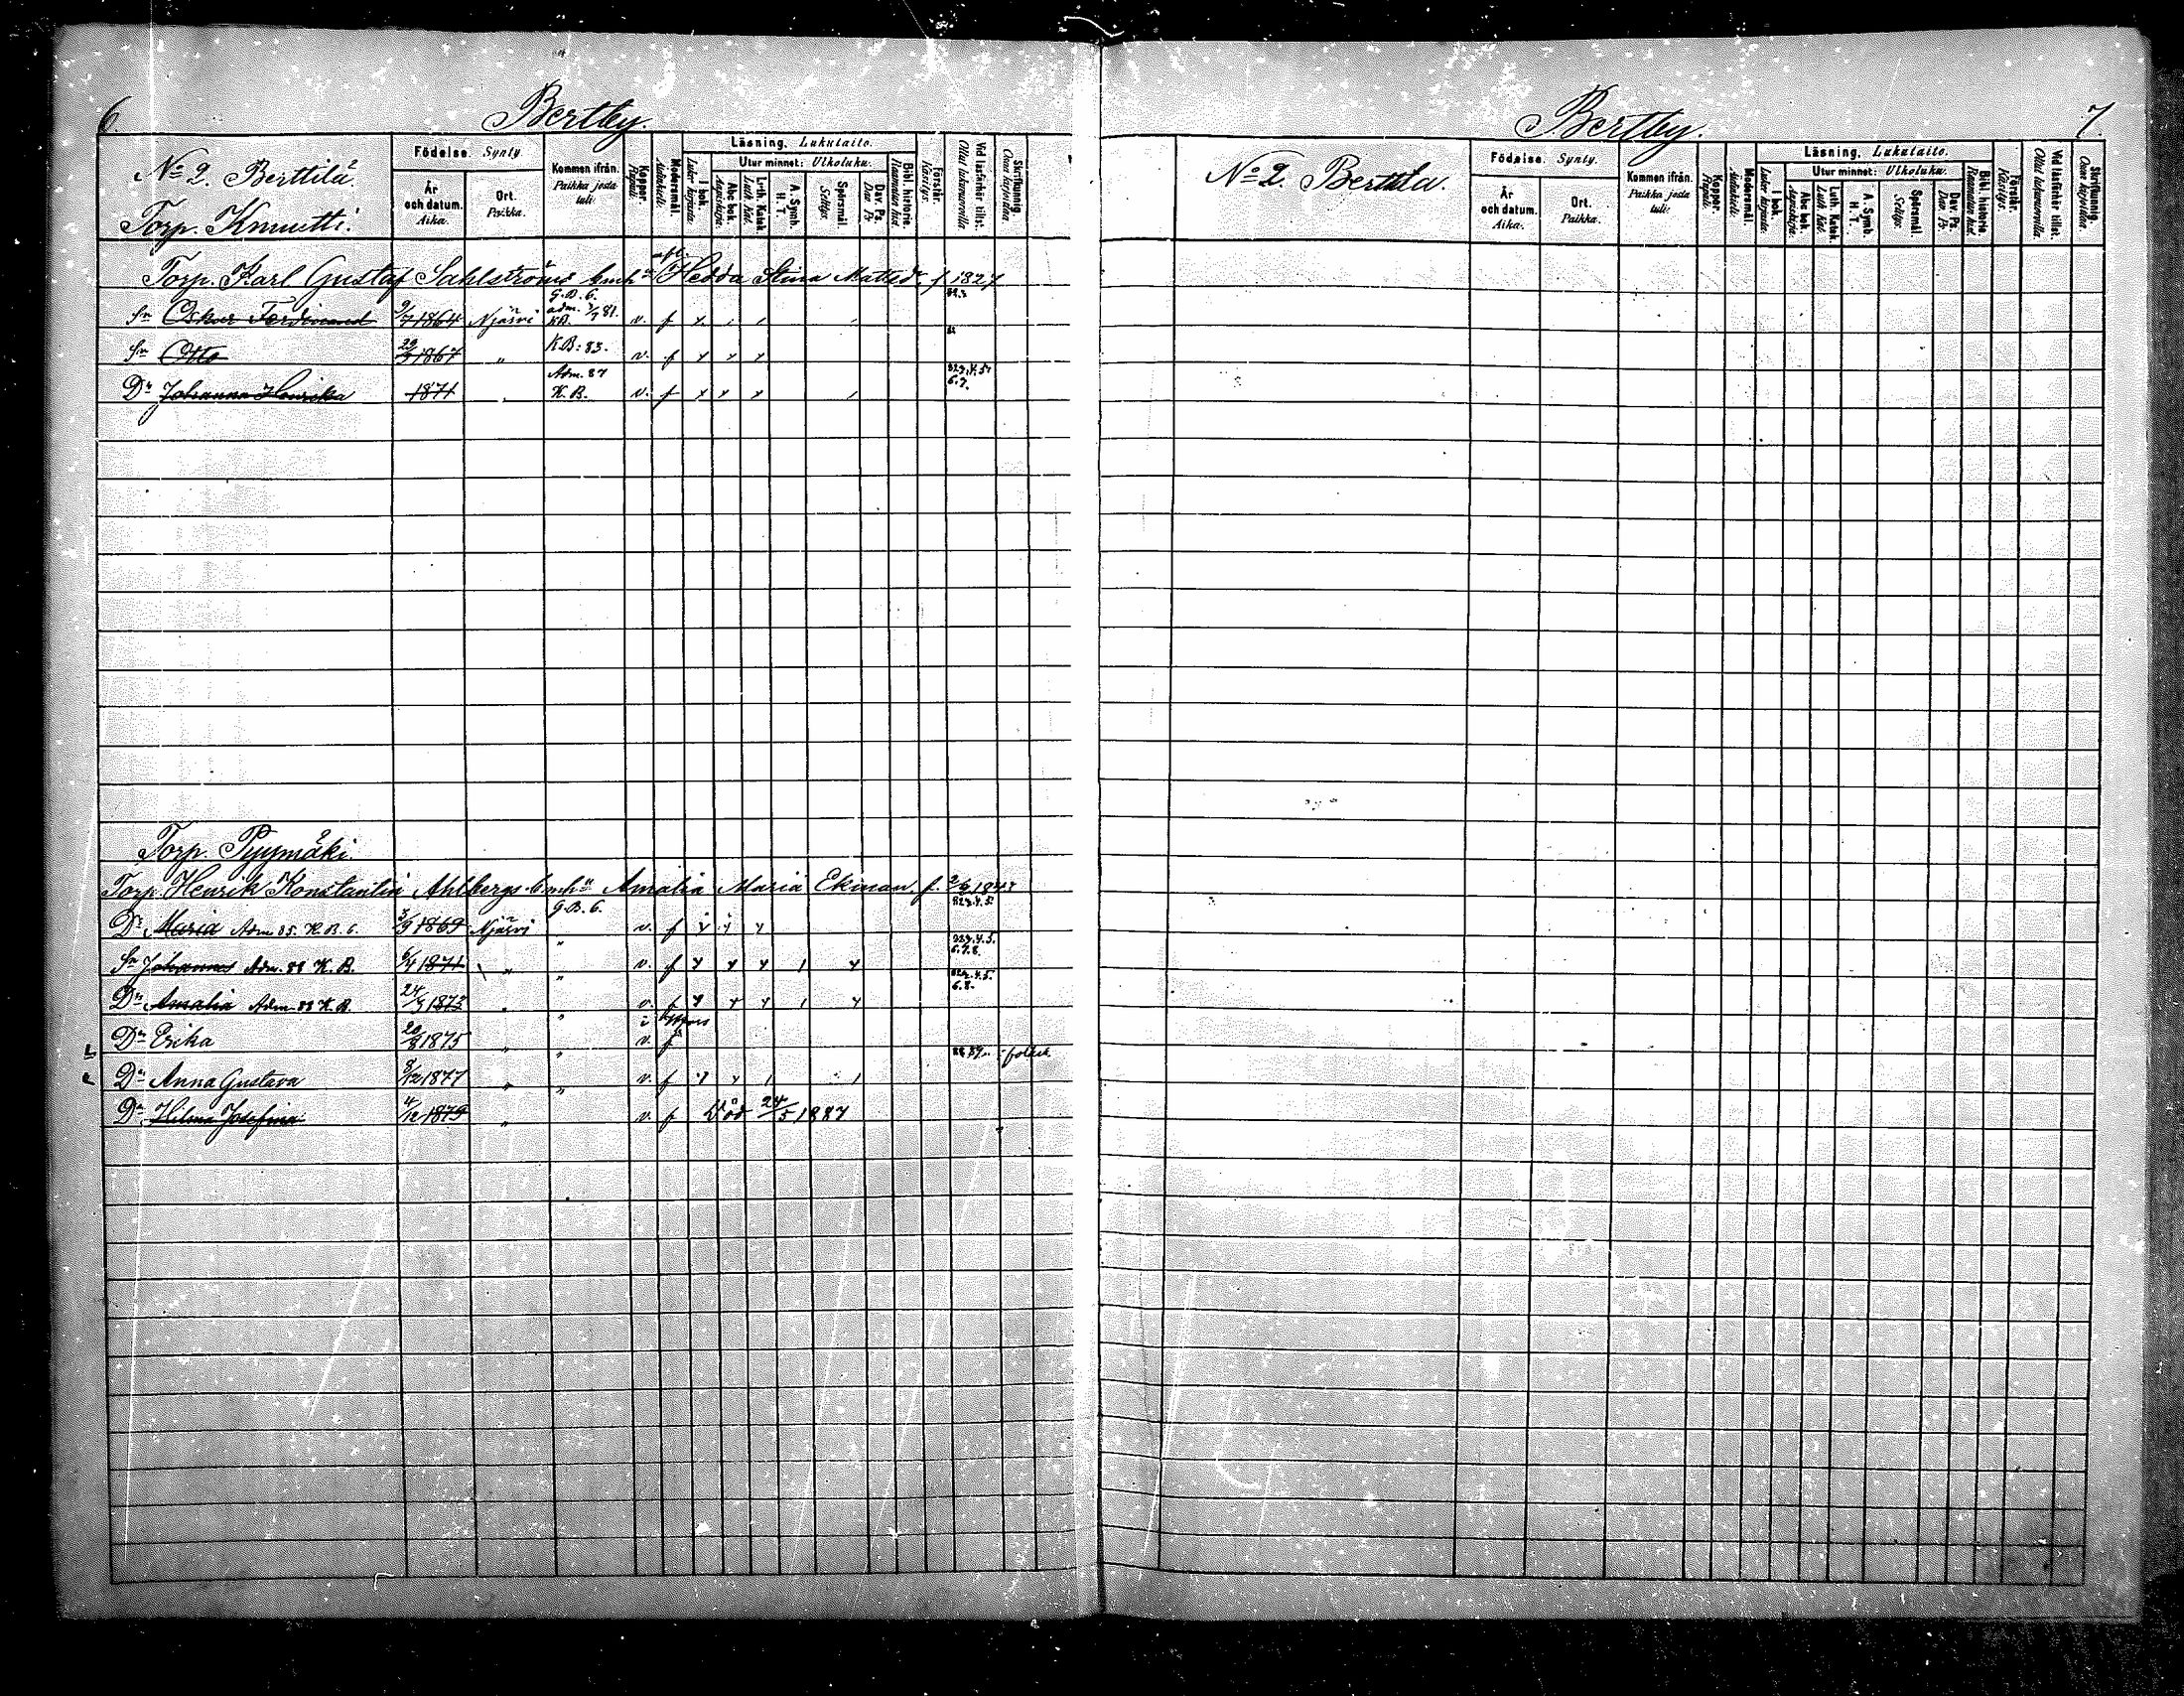 6.
Bertby.
No 2. Berttilä.
Torp. Knuutti.
Födelse. Synty.
År och datum. Aika.
Ort. Paikka.
Kommen ifrån. Paikka josta tuli.
Koppor. Rupuli.
Modersmål. Äidinkieli.
Läsning. Lukutaito.
I bok. Lukee kirjasta.
Utur minnet: Ulkoluku.
Abc bok. Aapiskirja.
Luth. Katek. Luth. Kat.
A. Symb. H. T.
Spörsmål. Selitys.
Dav. Ps. Dav. Ps.
Bibl. historie. Raamatun hist.
Förstår. Käsitys.
Vid läsförhör tillst. Ollut lukuvuorolla
Skriftkunnig. Osaa kirjoittaa.
Torp. Karl Gustaf Sahlströms Hedda Stina Matsd. f 1827
Sn Oskar Ferdinand 9/7 1864 Njärvi G.B. 6. adm. 81. KB. v. f
Sn Otto 1867 " K.B: 83. v. f
Dr Johanna Henrika 1871 " Adm. 87 K.B. v. f
Torp. Pyymäki.
Torp. Henrik Konstantin Ahlbergs Amalia Maria Ekman. f.
Dr Maria Adm 85. K.B. 6. 3/9 1869 Njärvi G.B. 6. v. f
Sn Johannes Adm. 88 K.B. 6/4 1871 " " v. f
Dr Amalia Adm. 88 K.B. 24/3 1873 " " v. f
Dr Erika 20/8 1875 " " v. f
Dr Anna Gustava 8/12 1877 " " v. f
Dr Hilma Josefina 4/12 1879 " v. f Död 24/5 1887
7.
Bertby.
No 2. Berttila.
Födelse. Synty.
År och datum. Aika.
Ort. Paikka.
Kommen ifrån. Paikka josta tuli:
Koppor. Rupuli.
Modersmål. Äidinkieli.
Läsning. Lukutaito.
I bok. Lukee kirjasta.
Utur minnet: Ulkoluku.
Abc bok. Aapiskirja.
Luth. Katek. Luth. Kat.
A. Symb. H. T.
Spörsmål. Selitys.
Dav. Ps. Dav. Ps.
Bibl. historie. Raamatun hist.
Förstår. Käsitys.
Vid läsförhör tillst. Ollut lukuvuorolla.
Skriftkunnig. Osaa kirjoittaa.